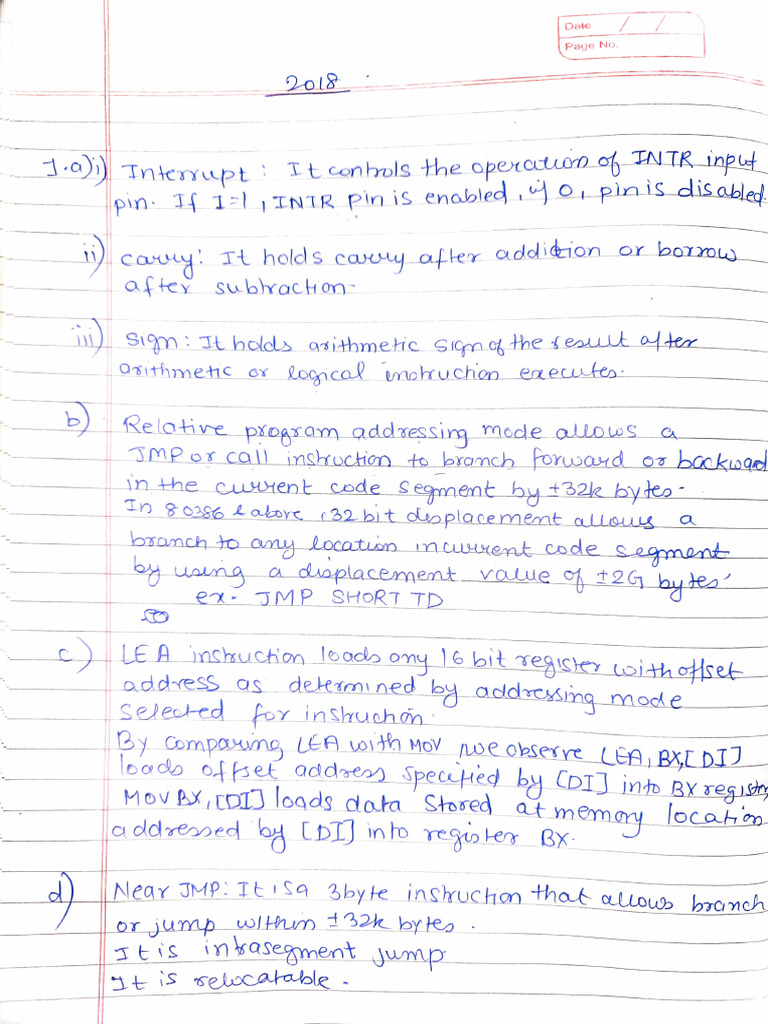 Date / /
Page No.
2018
1.a)i) Interrupt : It controls the operation of INTR input
pin. If I=1, INTR pin is enabled, if 0, pin is disabled.
ii) carry: It holds carry after addition or borrow
after subtraction.
iii) sign: It holds arithmetic sign of the result after
arithmetic or logical instruction executes.
b) Relative program addressing mode allows a
JMP or call instruction to branch forward or backward
in the current code segment by ±32k bytes.
In 80386 & above, 32 bit displacement allows a
branch to any location in current code segment
by using a displacement value of ±2G bytes.
ex. JMP SHORT TD
c) LEA instruction loads any 16 bit register with offset
address as determined by addressing mode
selected for instruction.
By comparing LEA with MOV, we observe LEA, BX,[DI]
loads offset address specified by [DI] into BX register,
MOV BX, [DI] loads data stored at memory location
addressed by [DI] into register BX.
d) Near JMP: It is a 3byte instruction that allows branch
or jump within ±32k bytes.
It is intrasegment jump.
It is relocatable.